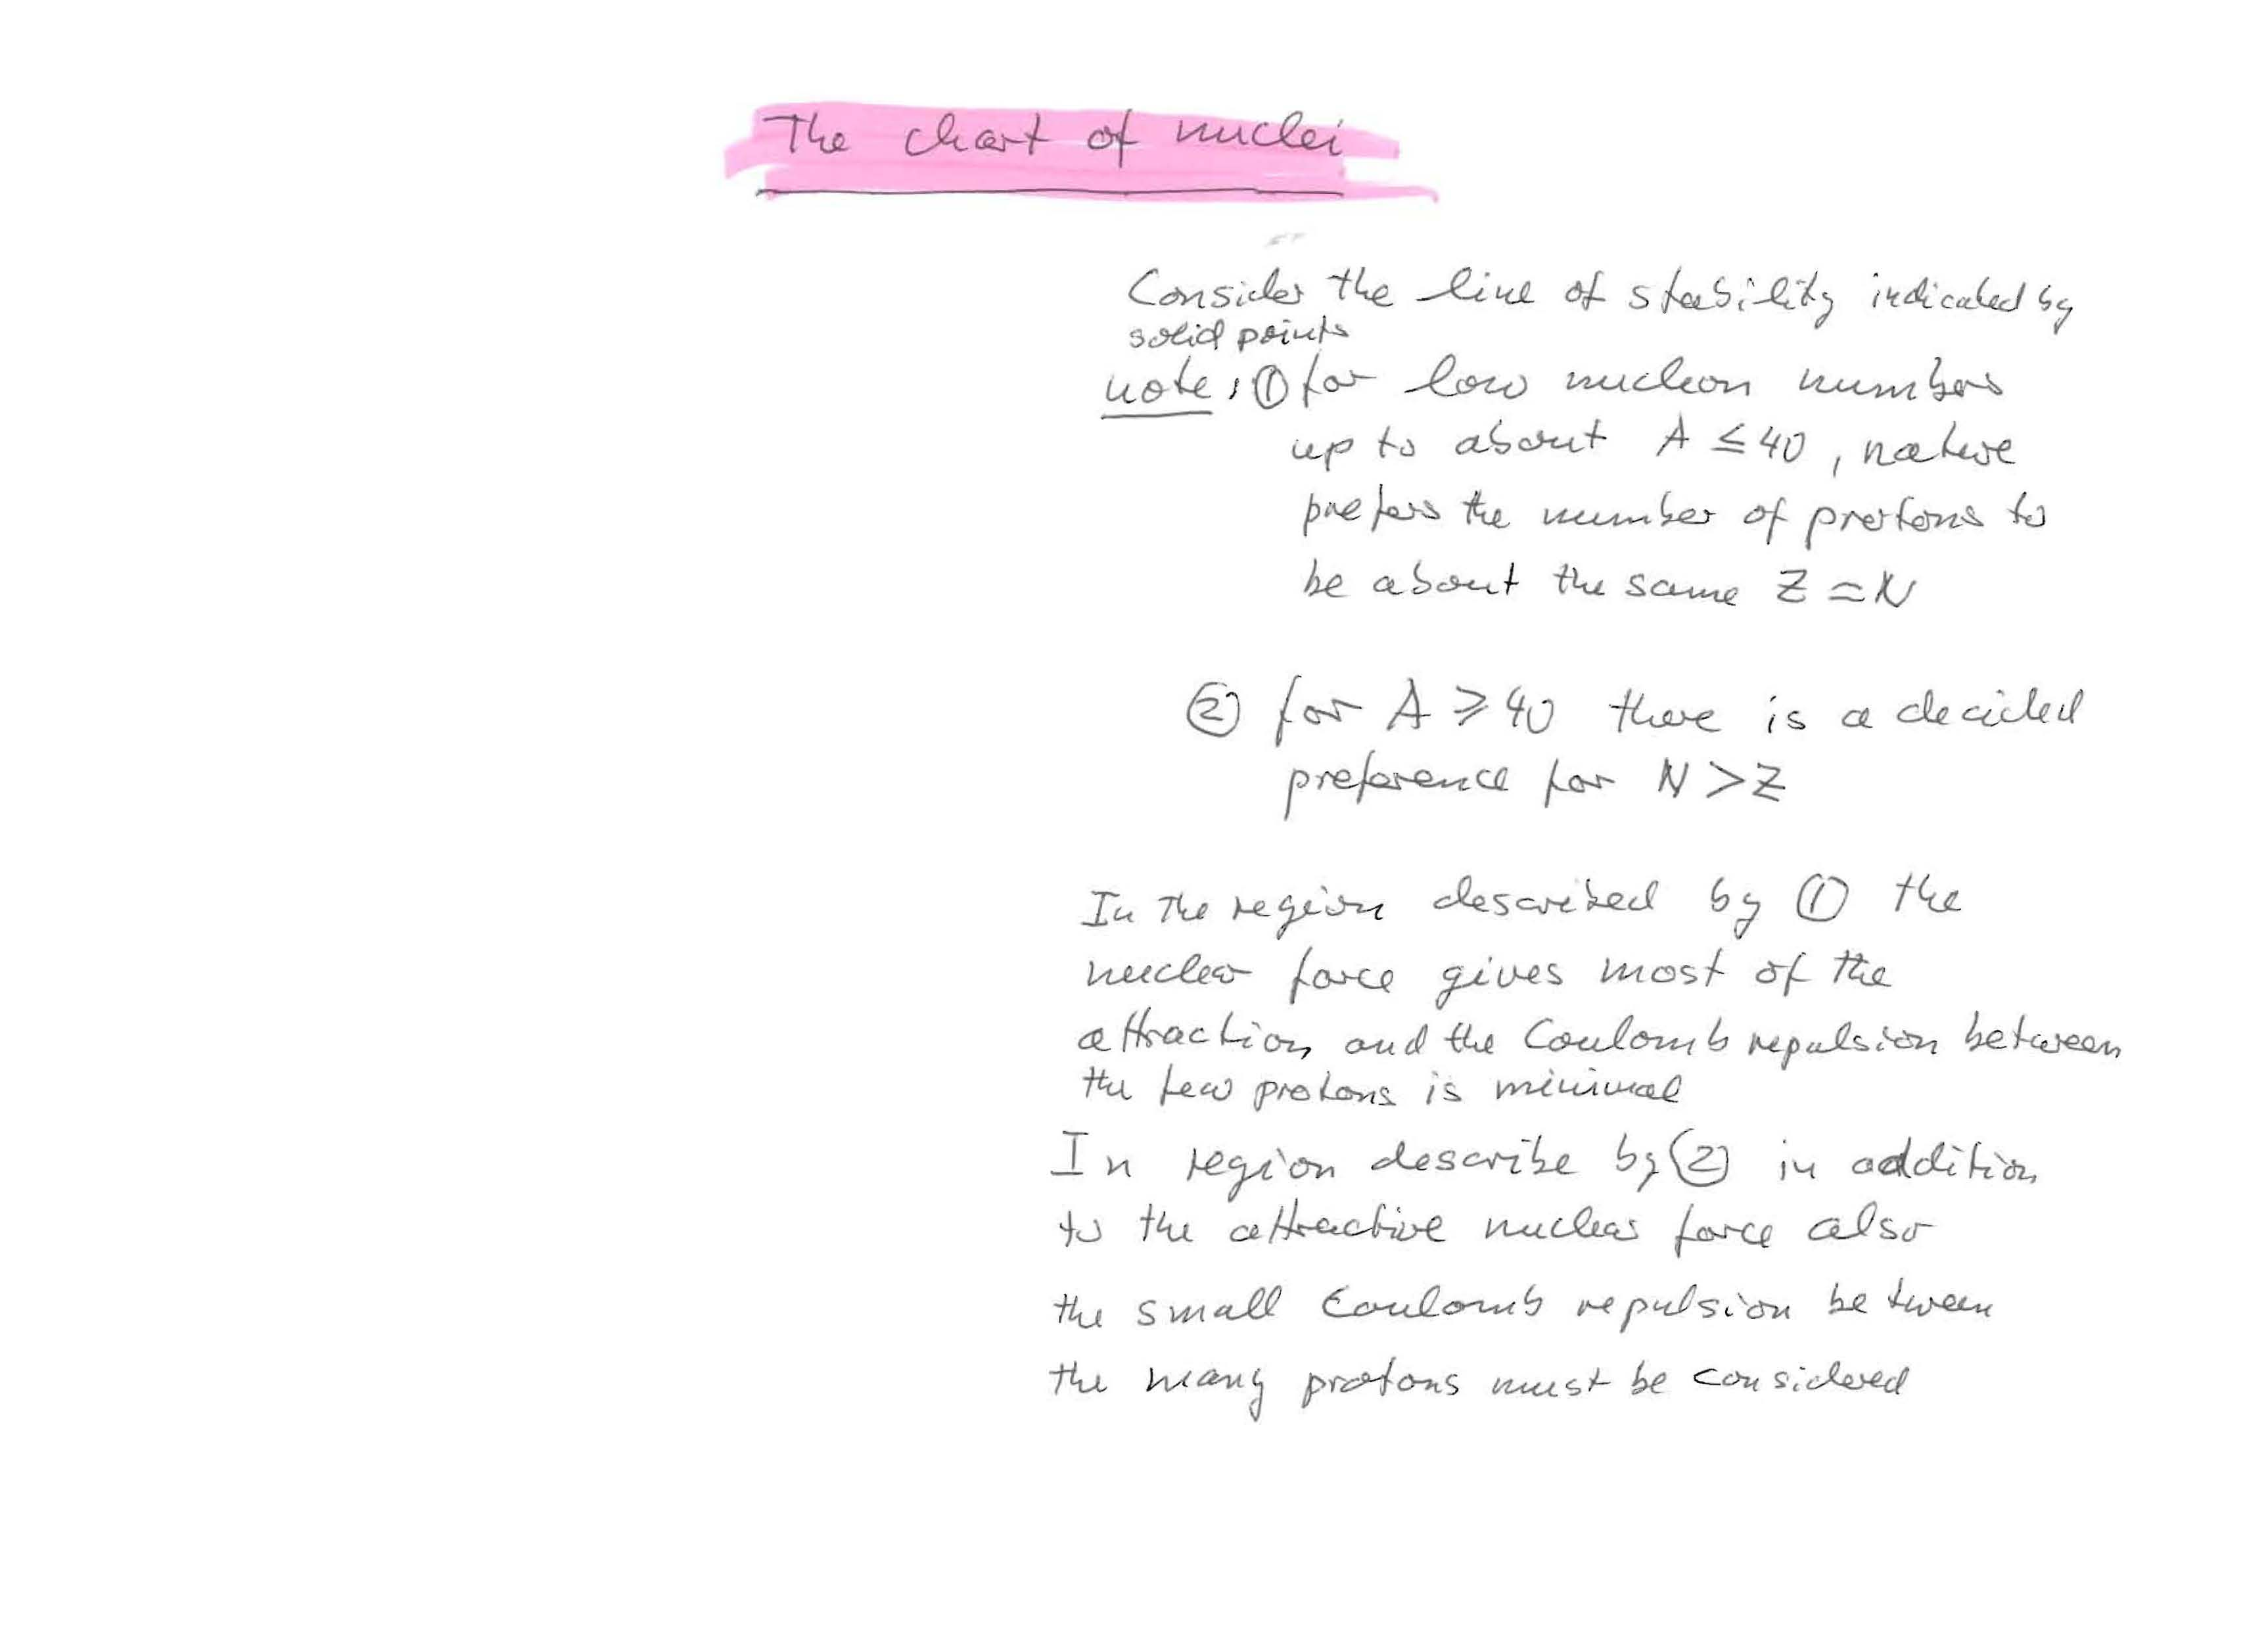 The chart of nuclei
Consider the line of stability indicated by
solid points
note: ① for low nucleon numbers
up to about A ≤ 40, nature
prefers the number of protons to
be about the same Z ≃ N
② for A ⩾ 40 there is a decided
preference for N > Z
In the region described by ① the
nuclear force gives most of the
attraction and the Coulomb repulsion between
the few protons is minimal
In region describe by ② in addition
to the attractive nuclear force also
the small Coulomb repulsion between
the many protons must be considered